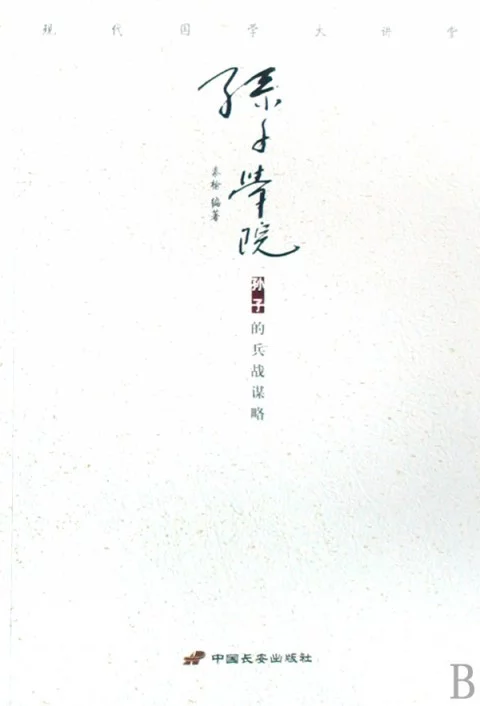 现代国学大讲堂
孫子學院
秦榆 编著
孙子的兵战谋略
中国长安出版社
B